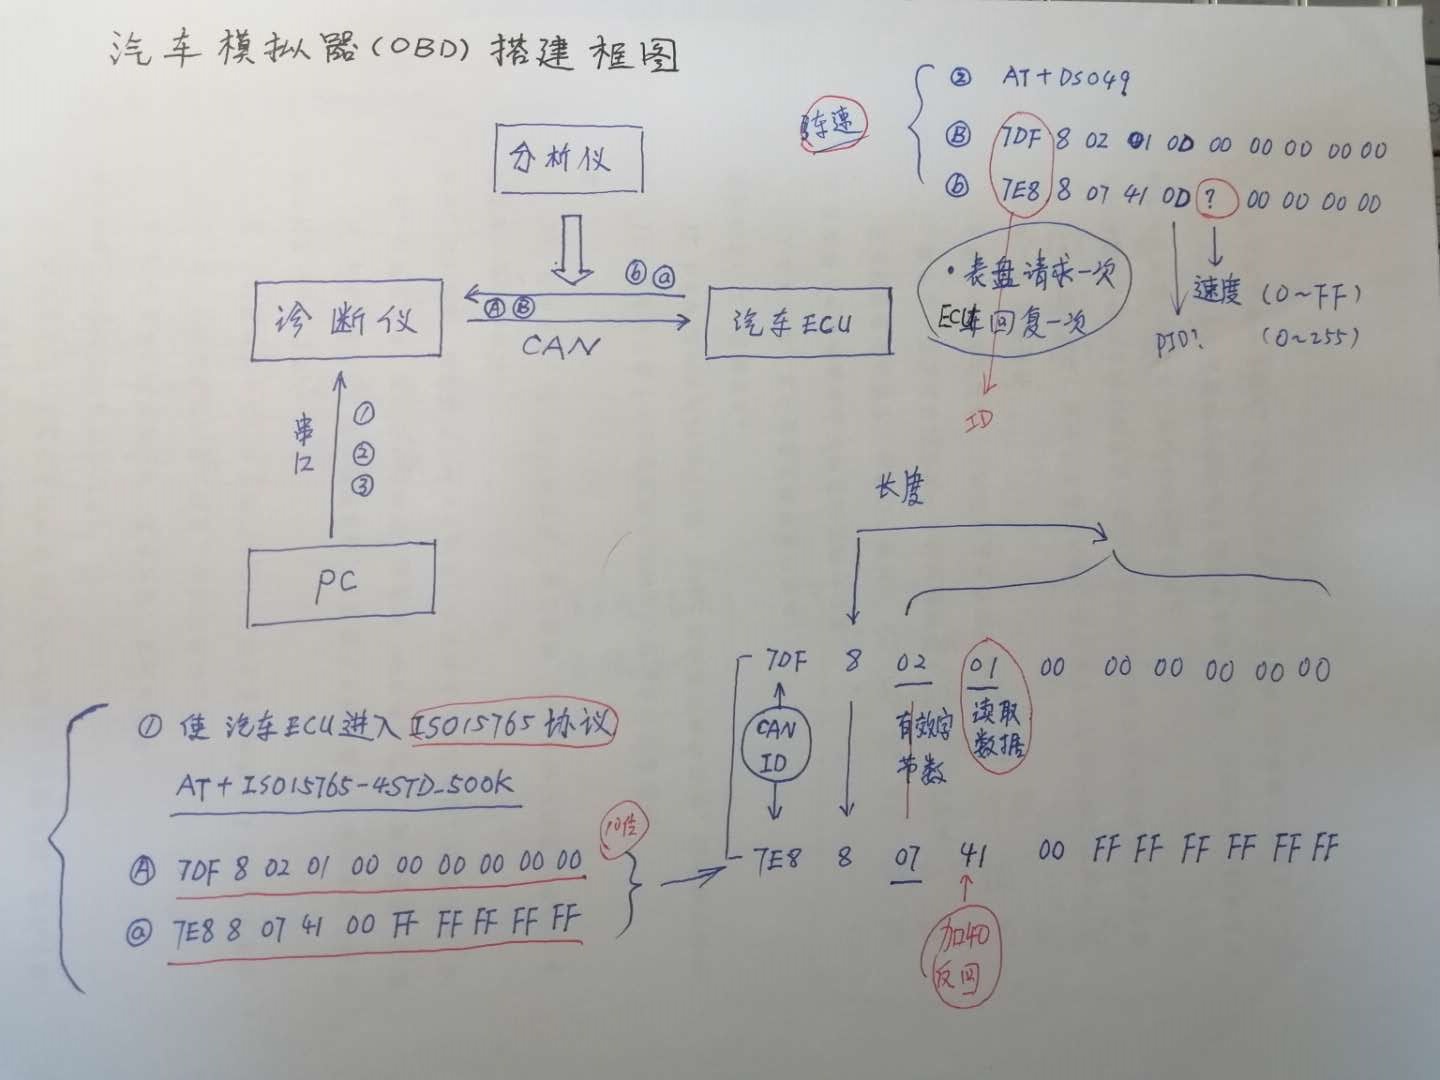 汽车模拟器(OBD)搭建框图
分析仪
诊断仪
ⓑ ⓐ
Ⓐ Ⓑ
CAN
汽车ECU
串口
①
②
③
PC
车速
② AT+DS049
Ⓑ 7DF 8 02 01 0D 00 00 00 00 00
ⓑ 7E8 8 07 41 0D ? 00 00 00 00
·表盘请求一次
ECU 回复一次
ID
PID?
速度 (0~FF)
(0~255)
长度
7DF 8 02 01 00 00 00 00 00 00
CAN ID
有效字节数
读取数据
7E8 8 07 41 00 FF FF FF FF FF FF
加40
反回
① 使汽车ECU进入ISO15765协议
AT+ISO15765-4STD_500K
10位
Ⓐ 7DF 8 02 01 00 00 00 00 00 00
ⓐ 7E8 8 07 41 00 FF FF FF FF FF